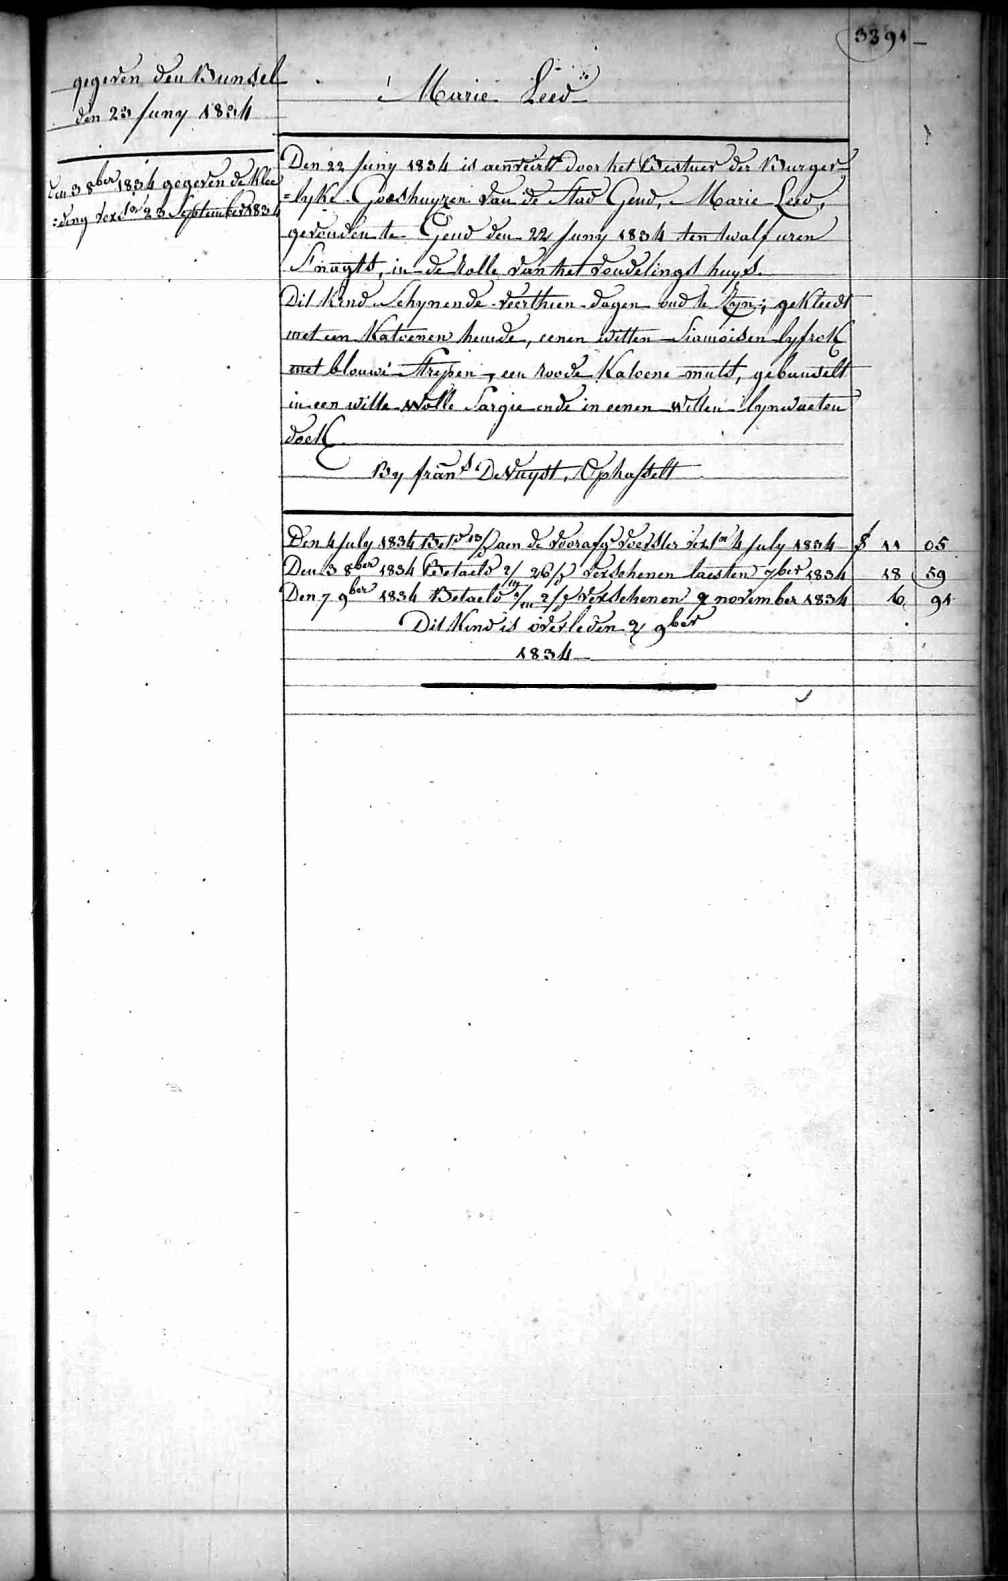 3391
gegeven den Bunsel
den 23 Juny 1834
Marie Leed
den 3 8ber 1834 gegeven de Klee
=ding 23 September 1834
Den 22 Juny 1834 is aenveird door het Bestuer der Burger=
=lyke Godshuyzen van de stad Gend, Marie Leed,
gevonden te Gend den 22 Juny 1834 ten twalf uren
S'nagts, in de Rolle van het vondelings huys.
Dit Kind Schynende veerthien dagen oud te Zyn; gekleedt
met een Katoenen hemde, eenen Witten Siamoisen lyfrok
met blouwe strepen, een roode Katoene muts, gebunselt
in een witte wolle Sargie ende in eenen Witten lynwaeten
doek
By frans. De Vuyst, Ophasselt
Den 4 July 1834 Bet.d 13/ aen de voorafg. voedster 4 July 1834 f 11 05
Den 3 8ber 1834 Betaeld 2/ 26/ verschenen laesten 7ber 1834 18 59
Den 7 9ber 1834 Betaeld 2/ verschenen 9 november 1834 6 91
Dit Kind is overleden 2 9ber
1834